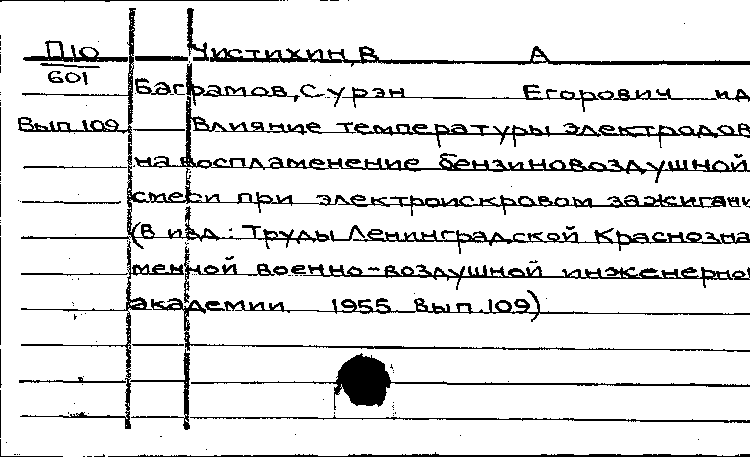 П10 Чистихин, В А
601
Баграмов, Сурэн Егорович и д
Вып. 109. Влияние температуры электродов
на воспламенение бензиновоздушной
смеси при электроискровом зажигани
(В изд.: Труды Ленинградской Краснозна
менной военно-воздушной инженерной
академии. 1955 Вып. 109)